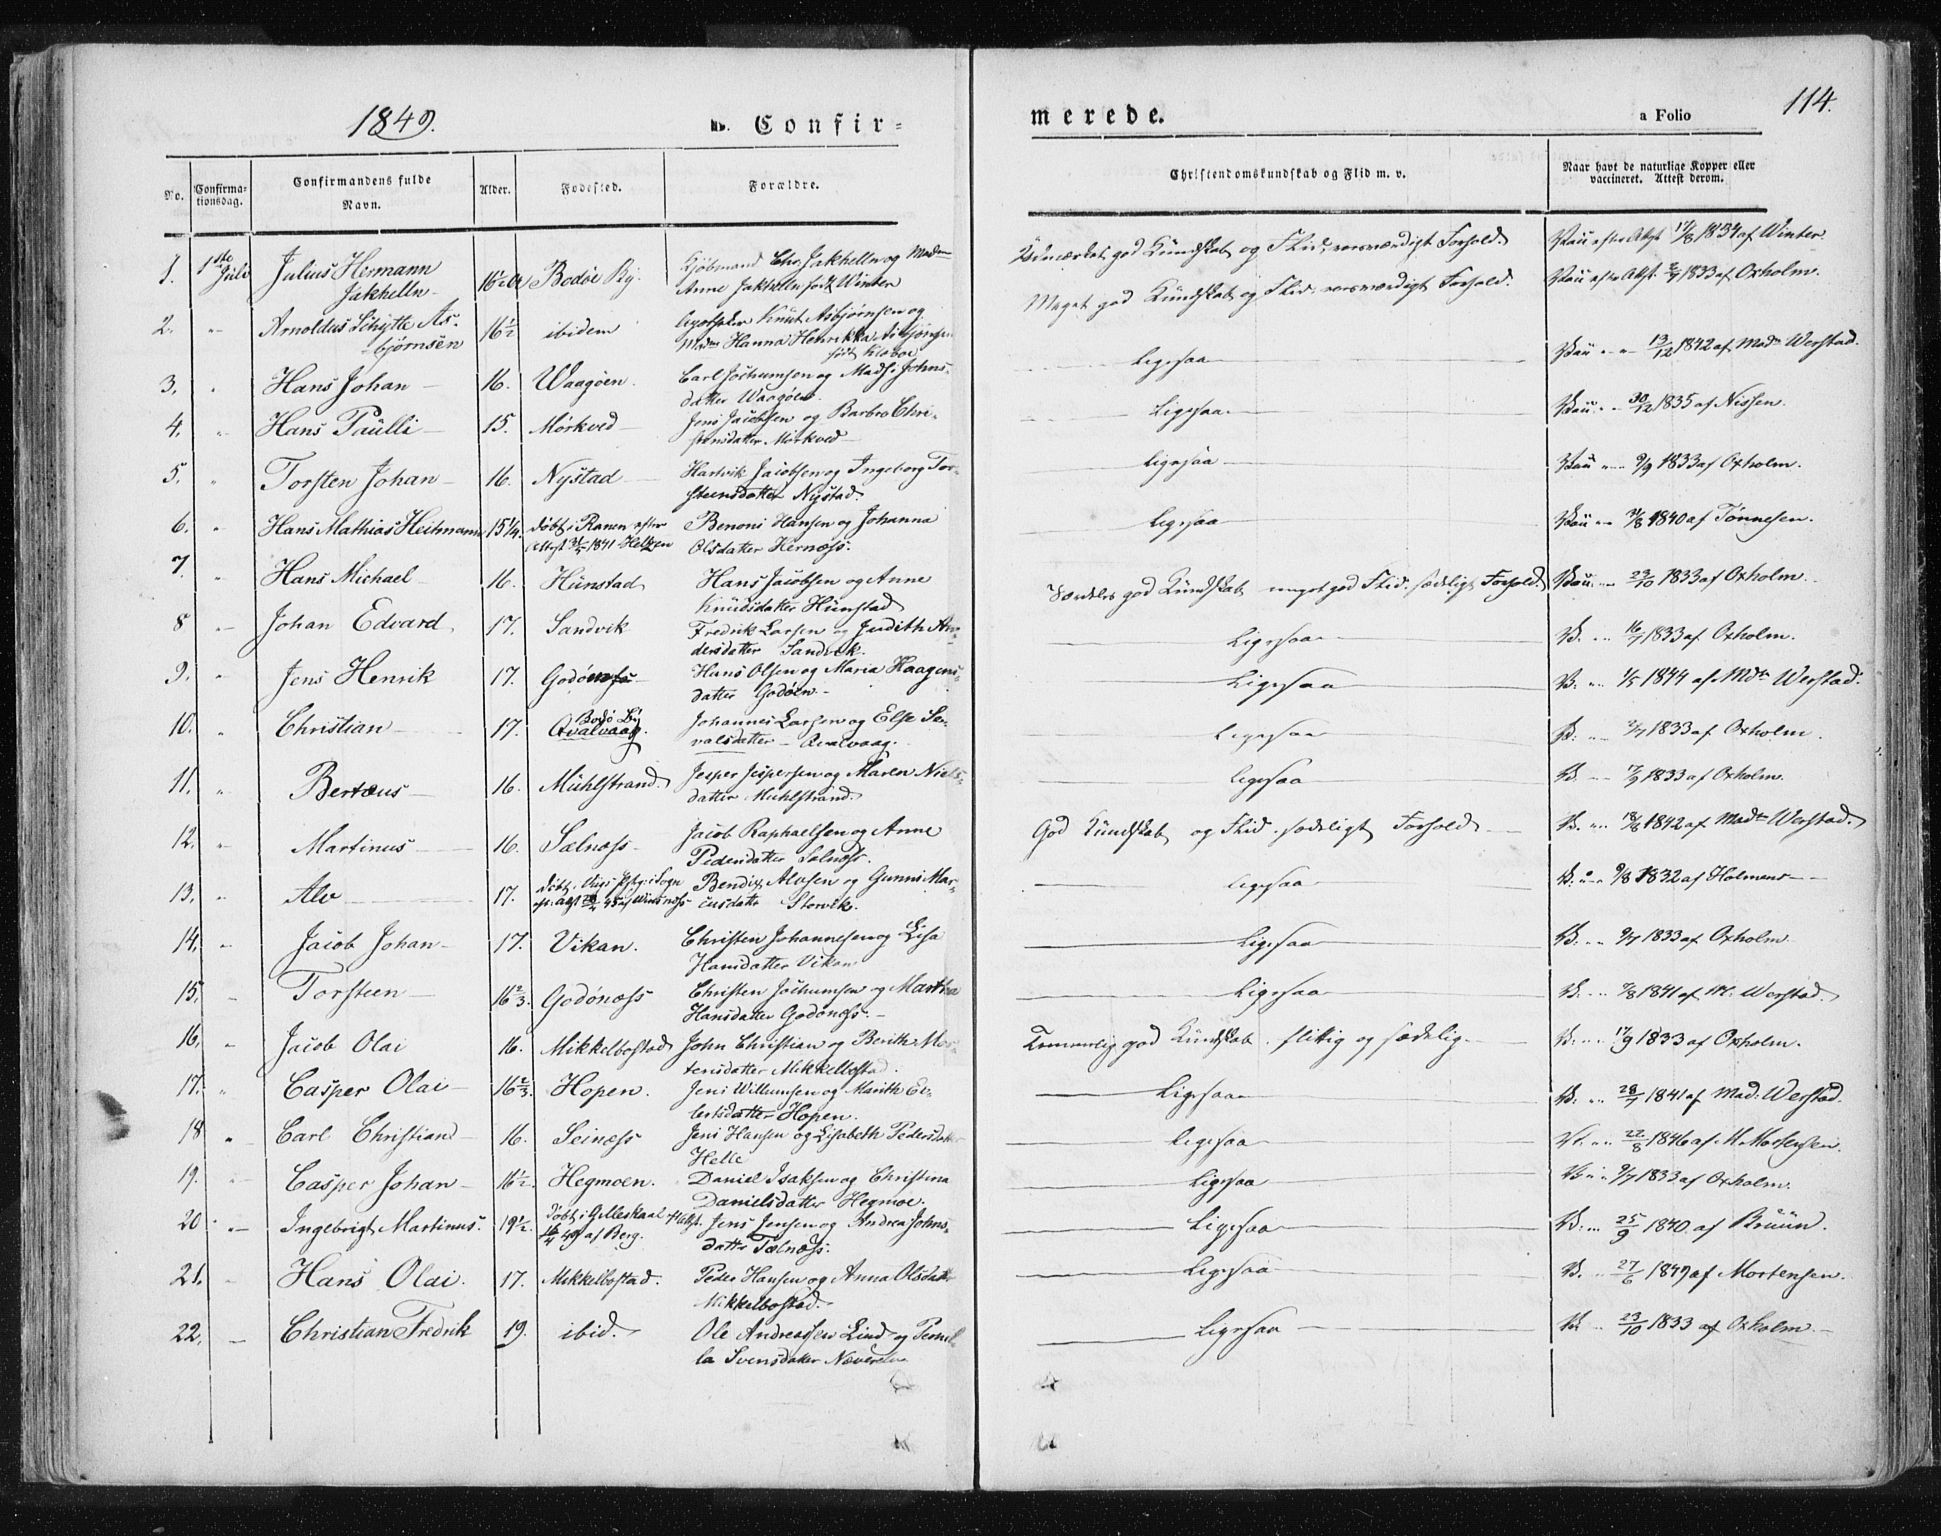 1849.
B. Confir-
merede.
a Folio
114.
No.
Confirma-
tionsdag.
Confirmandens fulde
Navn.
Alder.
Fødested.
Forældre.
Christendomskundskab og Flid m. v.
Naar havt de naturlige Kopper eller
vaccineret. Attest derom.
1. 1ste Juli Julius Hermann Jakhelln 16½ Bodøe By. Kjøbmand Chr. Jakhelln og Madm
Anne Jakhelln født Winter
Udmærket god Kundskab og Flid, roesværdigt Forhold. Vau efter Attest 17/8 1834 af Winter.
2. " Arnoldus Schytte As-
bjørnsen 16½ ibidem Apotheker Knut Asbjørnsen og
Madm Hanna Henrikka Asbjørnsen
født
Meget god Kundskab og Flid, roesværdigt Forhold. Vau efter Attst. 1833 af Oxholm.
3. " Hans Johan 16. Waagøen. Carl Jochumsen og Johns-
datter Waagøen.
Ligesaa Vau " " 13/12 1842 af Madm Werstad.
4. " Hans Paulli 15. Mørkved Jens Jacobsen og Barbro Chri-
stensdatter Mørkved
Ligesaa Vau " 30/12 1835 af Nissen.
5. " Torsten Johan 16. Nystad Hartvik Jacobsen og Ingeborg Tor-
steensdatter Nystad.
Ligesaa Vau " 9/9 1833 af Oxholm.
6. " Hans Mathias Heitmann 15¼. døbt i Ranen efter
Attest 1841 Heltzen Benoni Hansen og Johanna
Olsdatter Hernæss.
Ligesaa Vau " 1840 af Tønnesen.
7. " Hans Michael 16. Hunstad Hans Jacobsen og Anne
Knudsdatter Hunstad
Særdeles god Kundskab meget god Flid. sædeligt Forhold Vau. " 23/10 1833 af Oxholm.
8 " Johan Edvard 17. Sandvik Fredrik Larsen og Judith An-
dersdatter Sandvik.
Ligesaa V. " 16/7 1833 af Oxholm.
9. " Jens Henrik 17. Godønæs Hans Olsen og Maria Haagens-
datter Godøen
Ligesaa V. " 1/5 1844 af Mdm Werstad.
10. " Christian 17. Bodø By
Qvalvaag. Johannes Larsen og Else Se-
valsdatter Qvalvaag.
Ligesaa V. " 1833 af Oxholm.
11. " Bertæus 16. Muhlstrand. Jesper Jespersen og Maren Niels-
datter Muhlstrand.
Ligesaa V. " 17/9 1833 af Oxholm.
12. " Martinus 16. Sælnæss Jacob Raphaelsen og Anne
Pedersdatter Sælnæss.
God Kundskab og Flid. sædeligt Forhold V. " 18/8 1842 af Madm Werstad.
13. " Alv 17. døbt i Sogn
Bendix Alvsen og Gunni Mar-
cusdatter Storvik.
Ligesaa V. " 9/8 1832 af Holmens
14. " Jacob Johan 17. Vikan. Christen Johannesen og Lisa
Hansdatter Vikan
Ligesaa V. " 9/7 1833 af Oxholm
15. " Torsteen 16⅔. Godønæss Christen Jochumsen og Martha
Hansdatter Godønæss.
Ligesaa V. " 1841 af M. Werstad.
16. " Jacob Olai 16. Mikkelbostad John Christian og Berith Mor-
tensdatter Mikkelbostad.
Temmelig god Kundskab. flittig og sædelig V. " 17/9 1833 af Oxholm.
17. " Casper Olai 16⅔. Hopen. Jens Willumsen og Marith El-
lertsdatter Hopen.
Ligesaa V. " 28/7 1841 af Mad. Werstad.
18 " Carl Christian 16. Seinæss Jens Hansen og Lisabeth Pedersdatter
Helle
Ligesaa V. " 22/8 1846 af M. Mortensen.
19. " Casper Johan 16½. Hegmoen. Daniel Isaksen og Christina
Danielsdatter Hegmoe.
Ligesaa V. " 9/7 1833 af Oxholm.
20. " Ingebrigt Martinus. 19½. døbt i Gilleskaal Attst.
49 af Berg. Jens Jensen og Andrea Johns-
datter Tælnæss.
Ligesaa V. " 25/9 1840. af Bruun.
21. " Hans Olai. 17. Mikkelbostad. Peder Hansen og Anna Olsdatter
Mikkelbostad.
Ligesaa V. " 27/6 1849 af Mortensen.
22. " Christian Fredrik 19. ibid. Ole Andreassen Lind og Pernil-
la Svensdatter
Ligesaa V. 23/10 1833 af Oxholm.